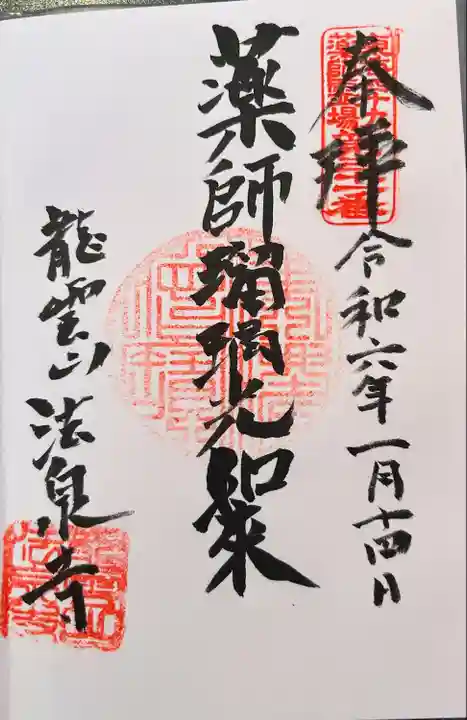 奉拝 令和六年一月十四日
薬師瑠璃光如来
龍雲山 法泉寺